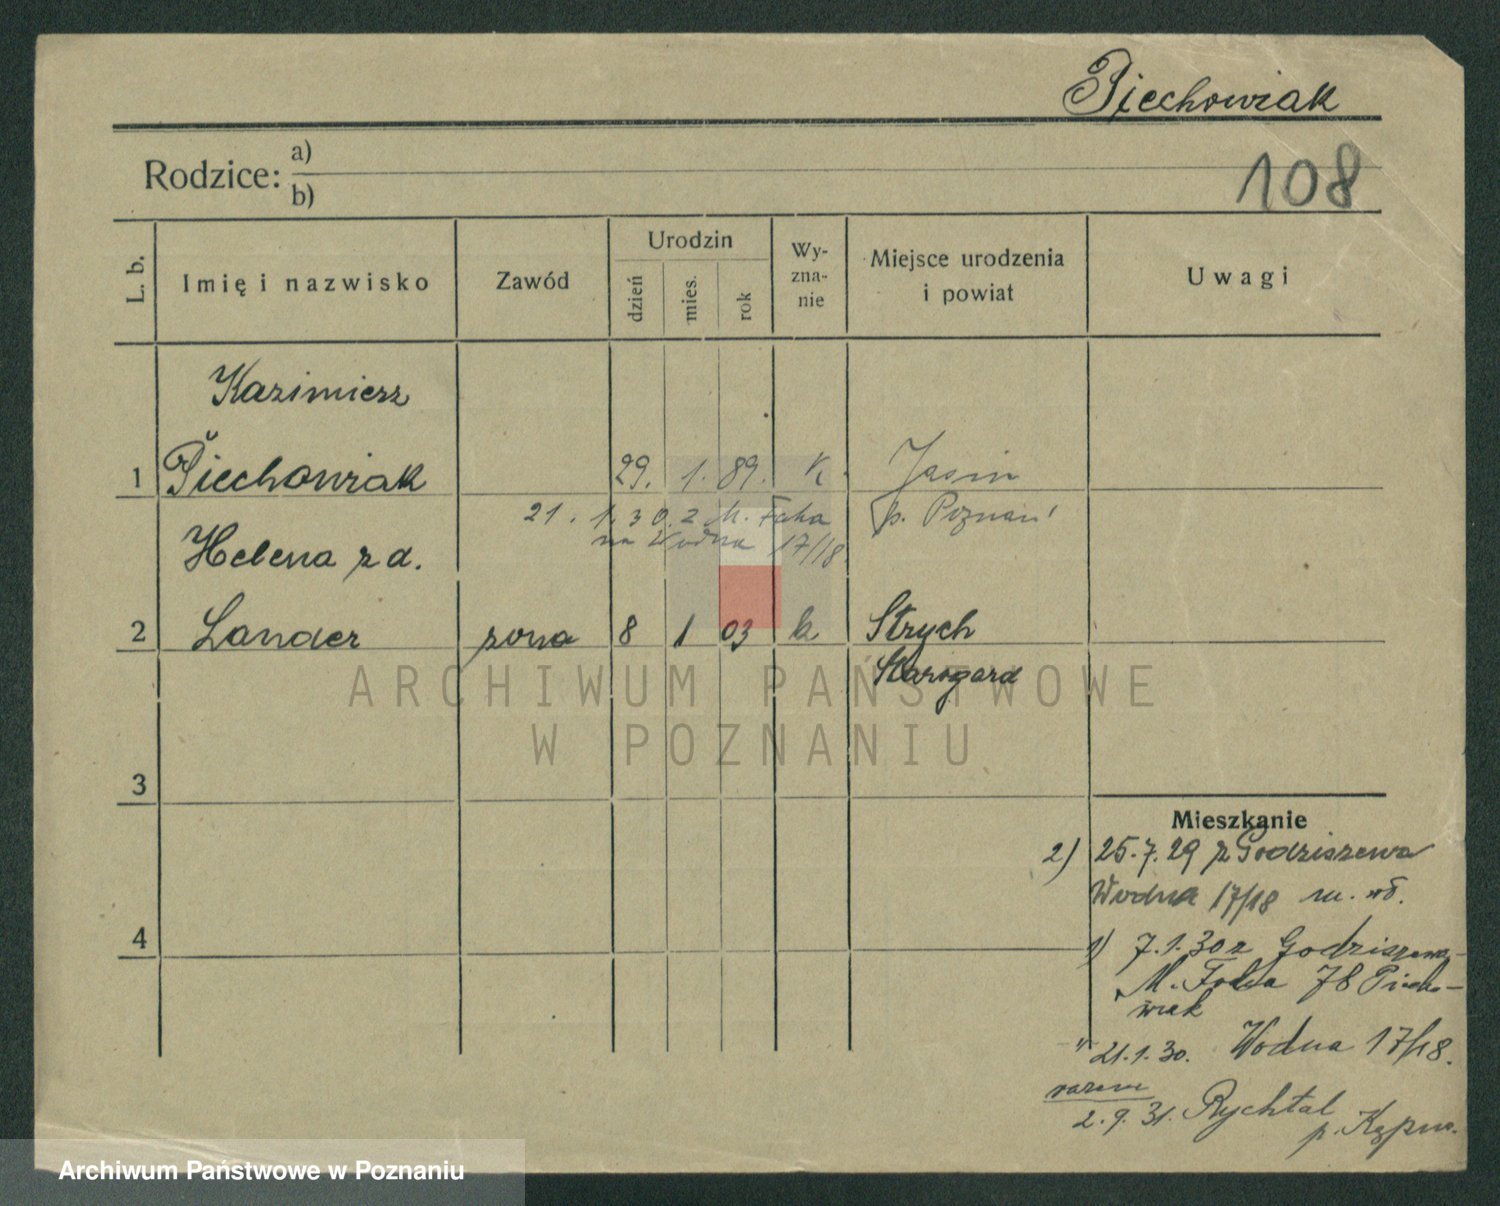 Piechowiak
Rodzice: a)
b)
108
L. b.
Imię i nazwisko
Zawód
Urodzin
dzień
mies.
rok
Wy-
zna-
nie
Miejsce urodzenia
i powiat
Uwagi
Kazimierz
1 Piechowiak 29. 1. 89. k. Jasin
p. Poznań
21. 1. 30. z M. Focha
na Wodna 17/18.
Helena z d.
2 Lander żona 8 1 03 k Strych
Starogard
ARCHIWUM PAŃSTWOWE
W POZNANIU
3
4
Mieszkanie
2) 25.7.29 z Godziszewa
Wodna 17/18
1) 7.1.30 z Godziszewa
M. Focha 78 Piecho-
wiak
" 21.1.30. Wodna 17/18.
razem
2.9.31. Rychtal
p. Kępno.
Archiwum Państwowe w Poznaniu